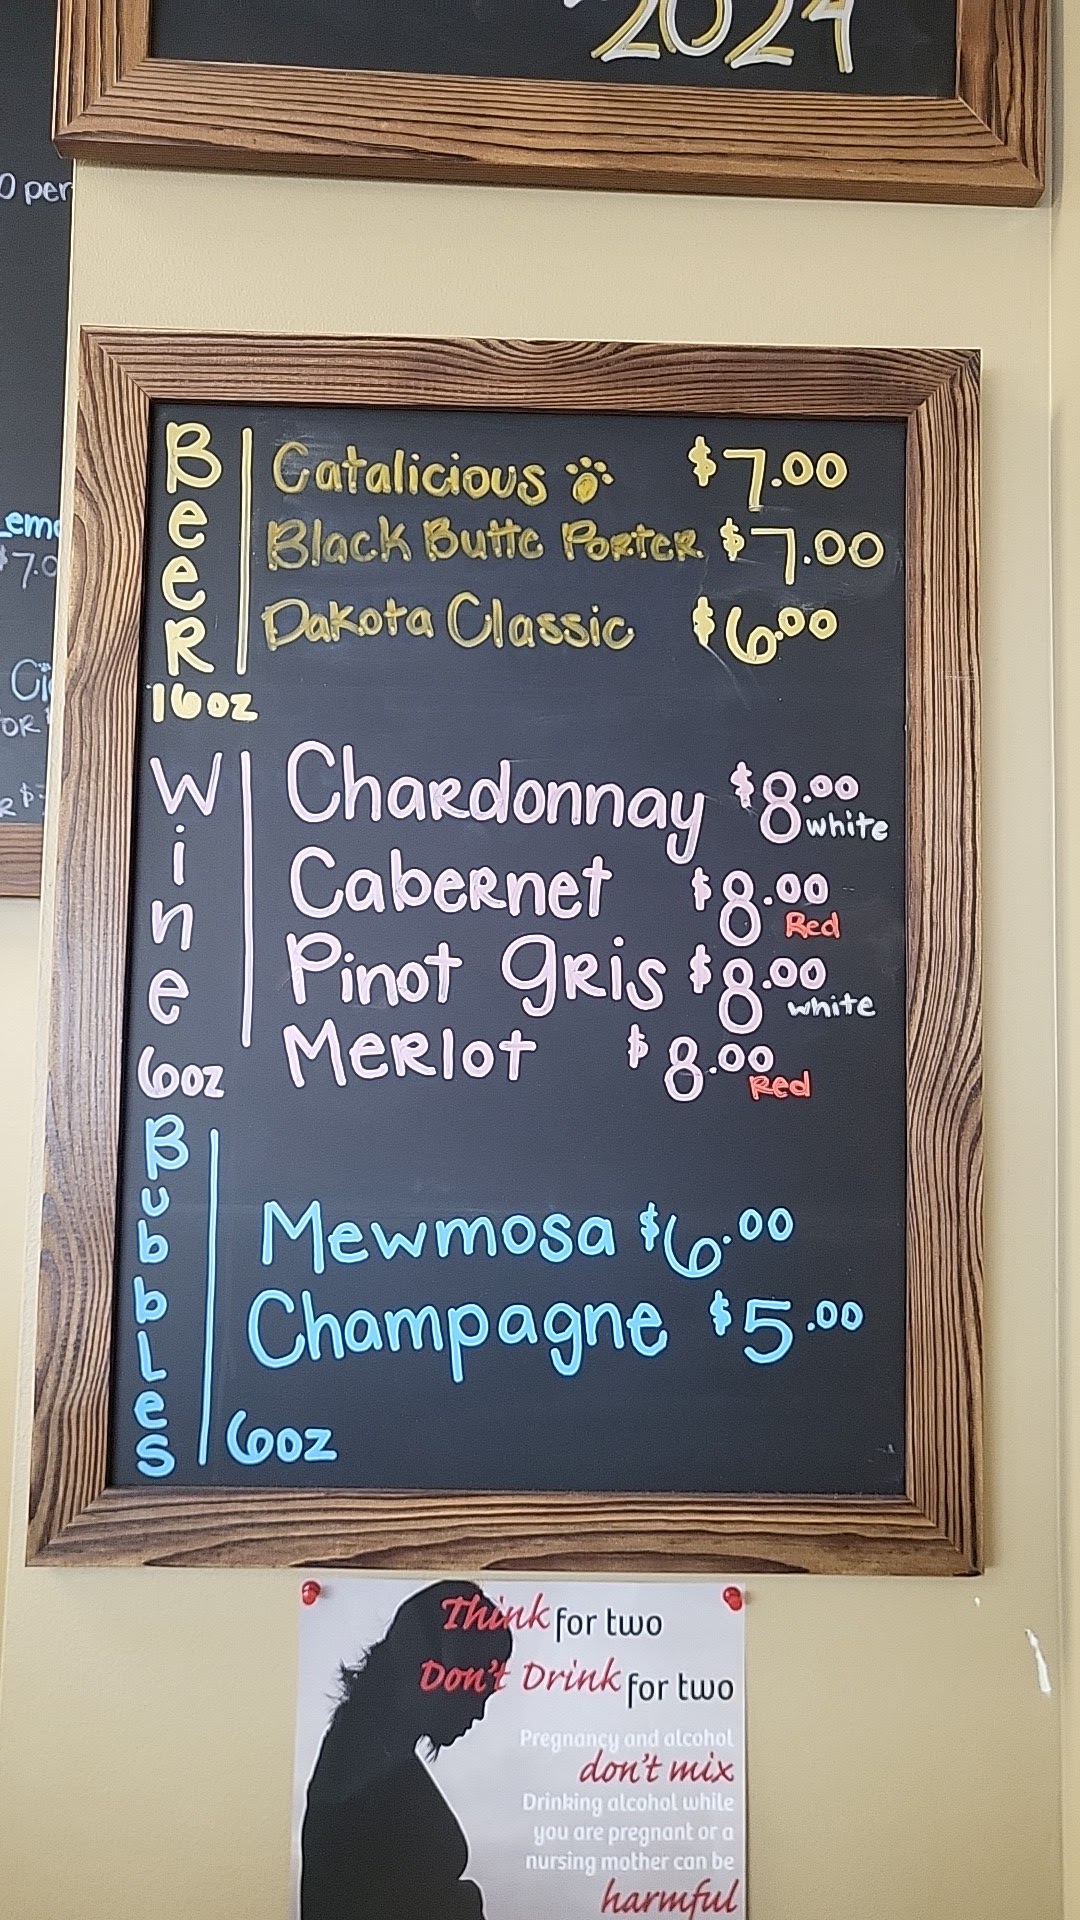 2024
0 per
Lemo
$7.0
Ci
OR
R $7
BeeR
16oz
Catalicious $7.00
Black Butte Porter $7.00
Dakota Classic $6.00
Wine
6oz
Chardonnay $8.00
white
Cabernet $8.00
Red
Pinot gris $8.00
white
Merlot $8.00
Red
Bubbles
Mewmosa $6.00
Champagne $5.00
6oz
Think for two
Don't Drink for two
Pregnancy and alcohol
don't mix
Drinking alcohol while
you are pregnant or a
nursing mother can be
harmful